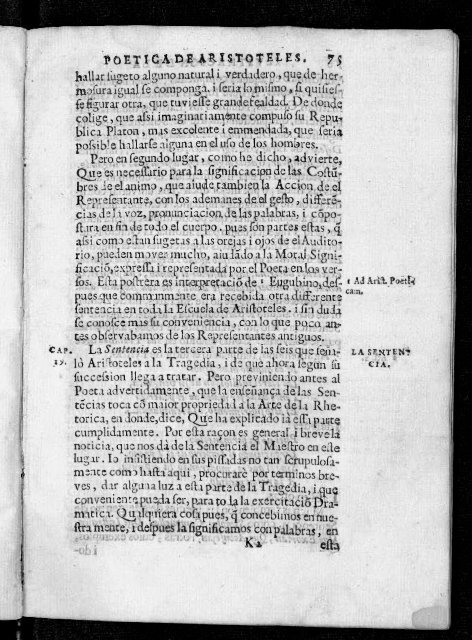 POETICA DE ARISTOTELES. 75
hallar sugeto alguno natural i verdadero, que de her-
mosura igual se componga. i seria lo mismo, si quisies-
se figurar otra, que tuviesse grande fealdad. De donde
colige, que assi imaginariamente compuso su Repu
blica Platon, mas excelente i emmendada, que seria
possible hallarse alguna en el uso de los hombres.
Pero en segundo lugar, como he dicho, advierte,
Que es necessario para la significacion de las Costũ
bres de el animo, que aiude tambien la Accion de el
Representante, con los ademanes de el gesto, diferẽ-
cias de la voz, pronunciacion de las palabras, i cõpo-
stura en fin de todo el cuerpo. pues son partes estas, q̃
assi como estan sugetas a las orejas i ojos de el Audito-
rio, pueden mover mucho, aiudãdo a la Moral Signi-
ficaciõ, expressa i representada por el Poeta en los ver-
sos. Esta postrera es interpretacio de ¹ Eugubino, des-
pues que commanmente era recebida otra differente
sentencia en toda la Escuela de Aristoteles. i sin duda
se conosce mas su conveniencia, con lo que poco an-
tes observabamos de los Representantes antiguos.
1 Ad Arist. Poeti-
cam.
CAP.
19.
La Sentencia es la tercera parte de las seis que seña-
lò Aristoteles a la Tragedia, i de que ahora segun su
succession llega a tratar. Pero previniendo antes al
Poeta advertidamente, que la enseñança de las Sen-
tẽcias toca cõ maior propriedad a la Arte de la Rhe-
torica, en donde, dice, Que ha explicado ià essa parte
cumplidamente. Por esta raçon es general i breve la
noticia, que nos dà de la Sentencia el Maestro en este
lugar. Io insistiendo en sus pissadas no tan scrupulosa-
mente como hasta aqui, procurarè por terminos bre-
ves, dar alguna luz a esta parte de la Tragedia, i que
conveniente pueda ser, para toda la exercitaciõ Dra-
matica. Qualquiera cosa pues, q̃ concebimos en nue-
stra mente, i despues la significamos con palabras, en
LA SENTEN-
CIA.
K 2 esta